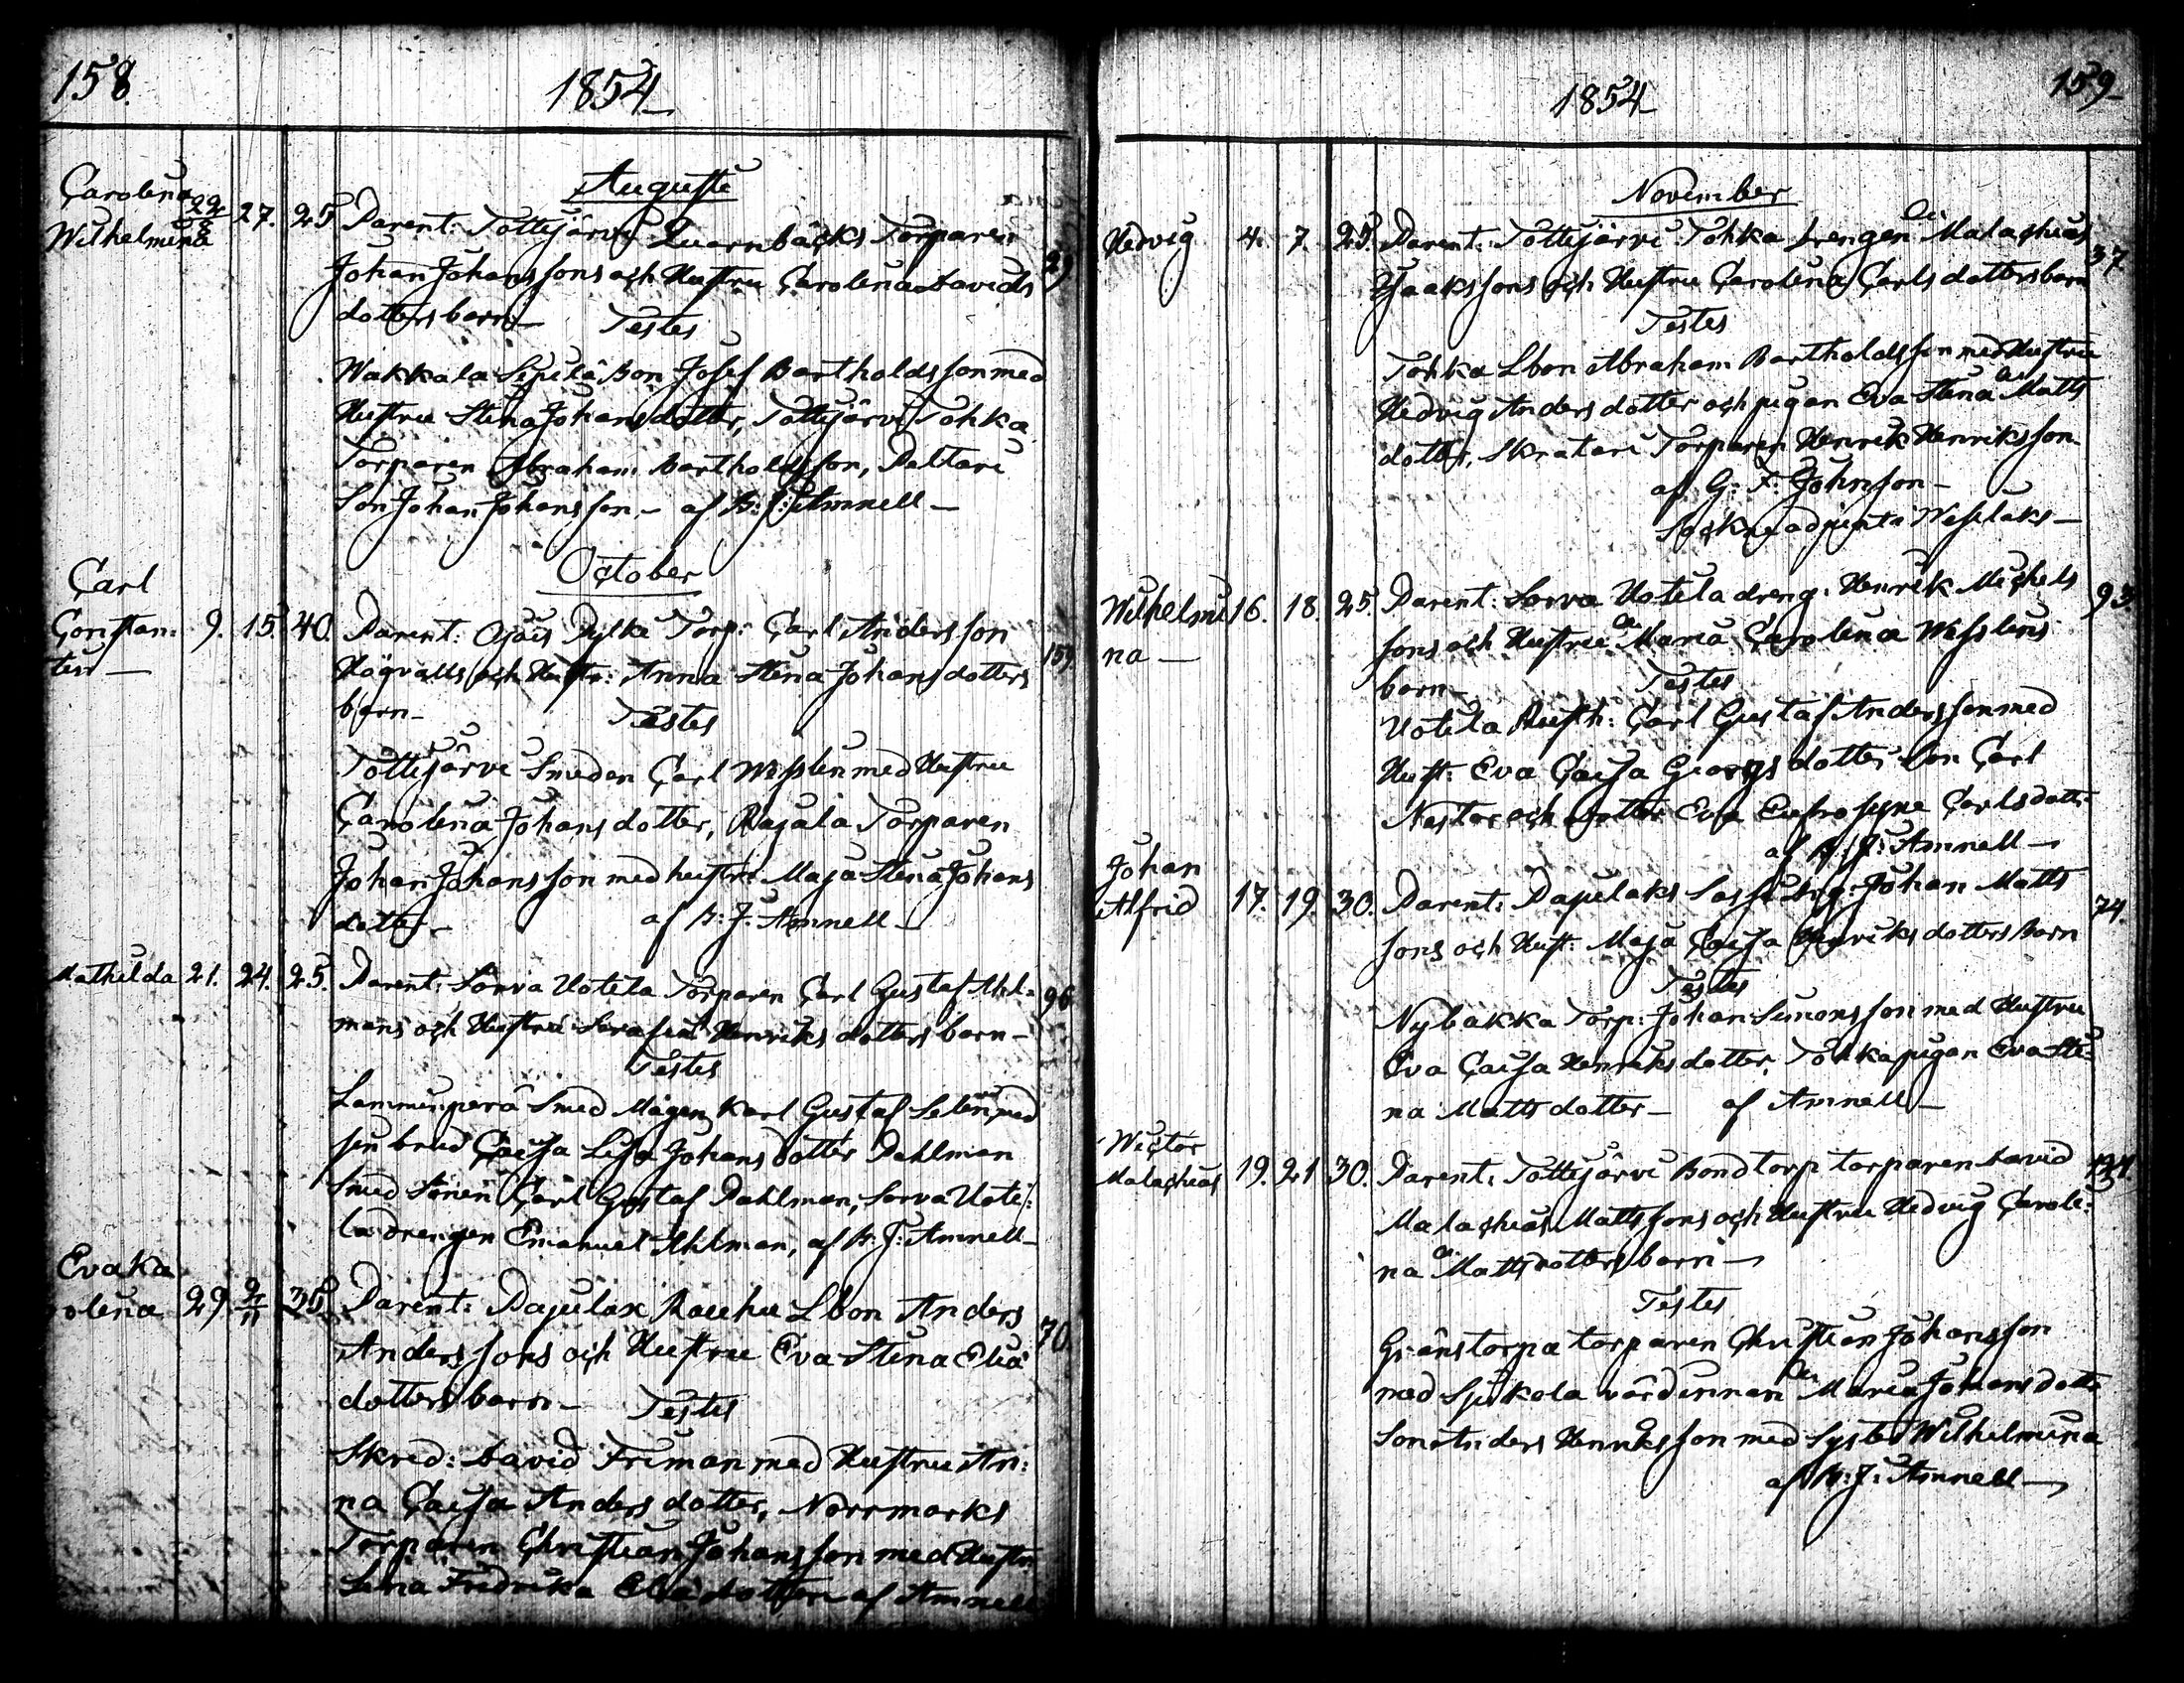 158.
1854
Augusti
Carolina 22/8 27. 25 Parent: Tottijärvi Quarnbäcks Torparen
Wilhelmina
Johan Johanssons och Hustru Carolina Davids 29
dotters barn –
Testes
Wakkala Sipilä Bon Josef Bartholdsson med
Hustru Stina Johansdotter, Tottijärvi Tohka
Torparen Abraham Bartholdsson, Paltari
Son Johan Johansson – af B: J: Amnell –
October
Carl
Constan: 9. 15. 40. Parent: Ojais Pylke Torp: Carl Andersson
tin –
Högvalls och Hustr: Anna Stina Johansdotters 159
barn –
Testes
Tottijärvi Smeden Carl Wesslin med Hustru
Carolina Johansdotter, Rajala Torparen
Johan Johansson med hustru Maja Stina Johans
dotter – af B: J: Amnell –
Mathilda 21. 24. 25. Parent: Sorva Uotila Torparen Carl Gustaf Ahl= 96
mans och Hustru Serafia Henriksdotters barn –
Testes
Lamminperä Smed Mågen Karl Gustaf Selin med
sin brud Cajsa Lisa Johansdotter Dahlman
Smed Sonen Carl Gustaf Dahlman, Sorva Uoti:
la drengen Emanuel Ahlman, af B: J: Amnell –
Eva Ka
rolina 29. 2/11 35. Parent: Pajulax Rauhu Lbon Anders
Anderssons och Hustru Eva Stina Eliæ 70.
dotters barn –
Testes
Skred: David Friman med Hustru An:
na Cajsa Andersdotter, Norrmarks
Torparen Christian Johansson med Hustr:
Lena Fredrika Eliædotter af Amnell
159
1854
November
Hedvig 4. 7. 25. Parent: Tottijärvi Tohka Drengen Malachias 37
Isaakssons och Hustru Carolina Carlsdotters barn
Testes
Tohka Lbon Abraham Bartholdsson med Hustru
Hedvig Andersdotter och pigan Eva Stina Matts
dotter, Skratari Torparen Henrik Henriksson
af G: F: Johnson –
Sockne adjunt i Wesilaks –
Wilhelmi 16. 18. 25. Parent: Sorva Uotila dreng: Henrik Michels 93.
na –
sons och Hustru Maria Carolina Wesslins
barn –
Testes
Uotila Rusth: Carl Gustaf Andersson med
Hust: Eva Cajsa Georgsdotter Son Carl
Nestor och dotter Eva Eufrosyne Carlsdott:
af B: J: Amnell –
Johan
Alfrid 17. 19. 30. Parent: Pajulaks Sassi Dreg: Johan Matts 74.
sons och Hust: Maja Cajsa Henriksdotters Barn
Testes
Nybakka Torp: Johan Simonsson med Hustru
Eva Cajsa Henriksdotter, Tohka pigan Eva Sti:
na Mattsdotter – af Amnell –
Wictor
Malachias 19. 21 30. Parent: Tottijärvi Bondtorp torparen David
Malachias Mattssons och Hustru Hedvig Caroli:
na Mattsdotters barn –
Testes
Gränstorpa torparen Christian Johansson
med Sjukola värdinnan Maria Johansdotte
Son Anders Henriksson med Syster Wilhelmina
af B: J: Amnell –